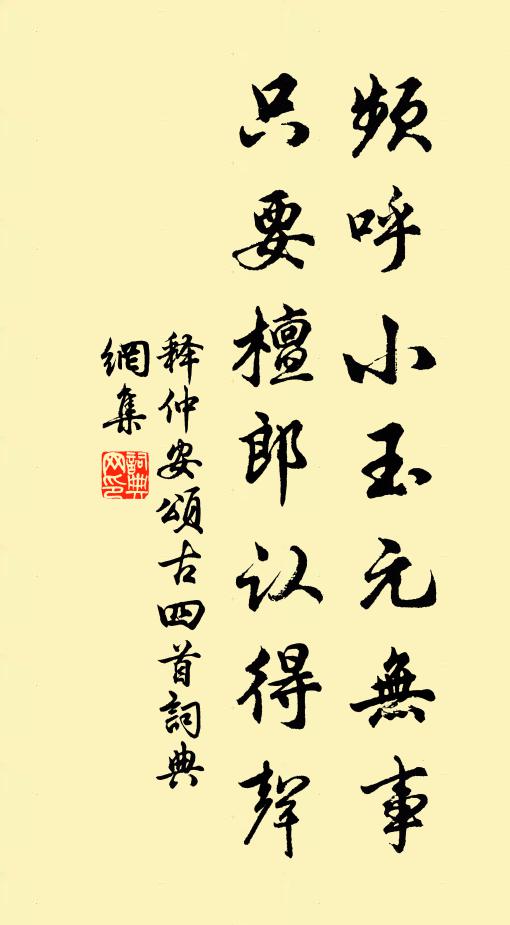 频呼小玉元無事
只要檀郎认得聲
释仲安頌古四首詞典
網集
詞典網印